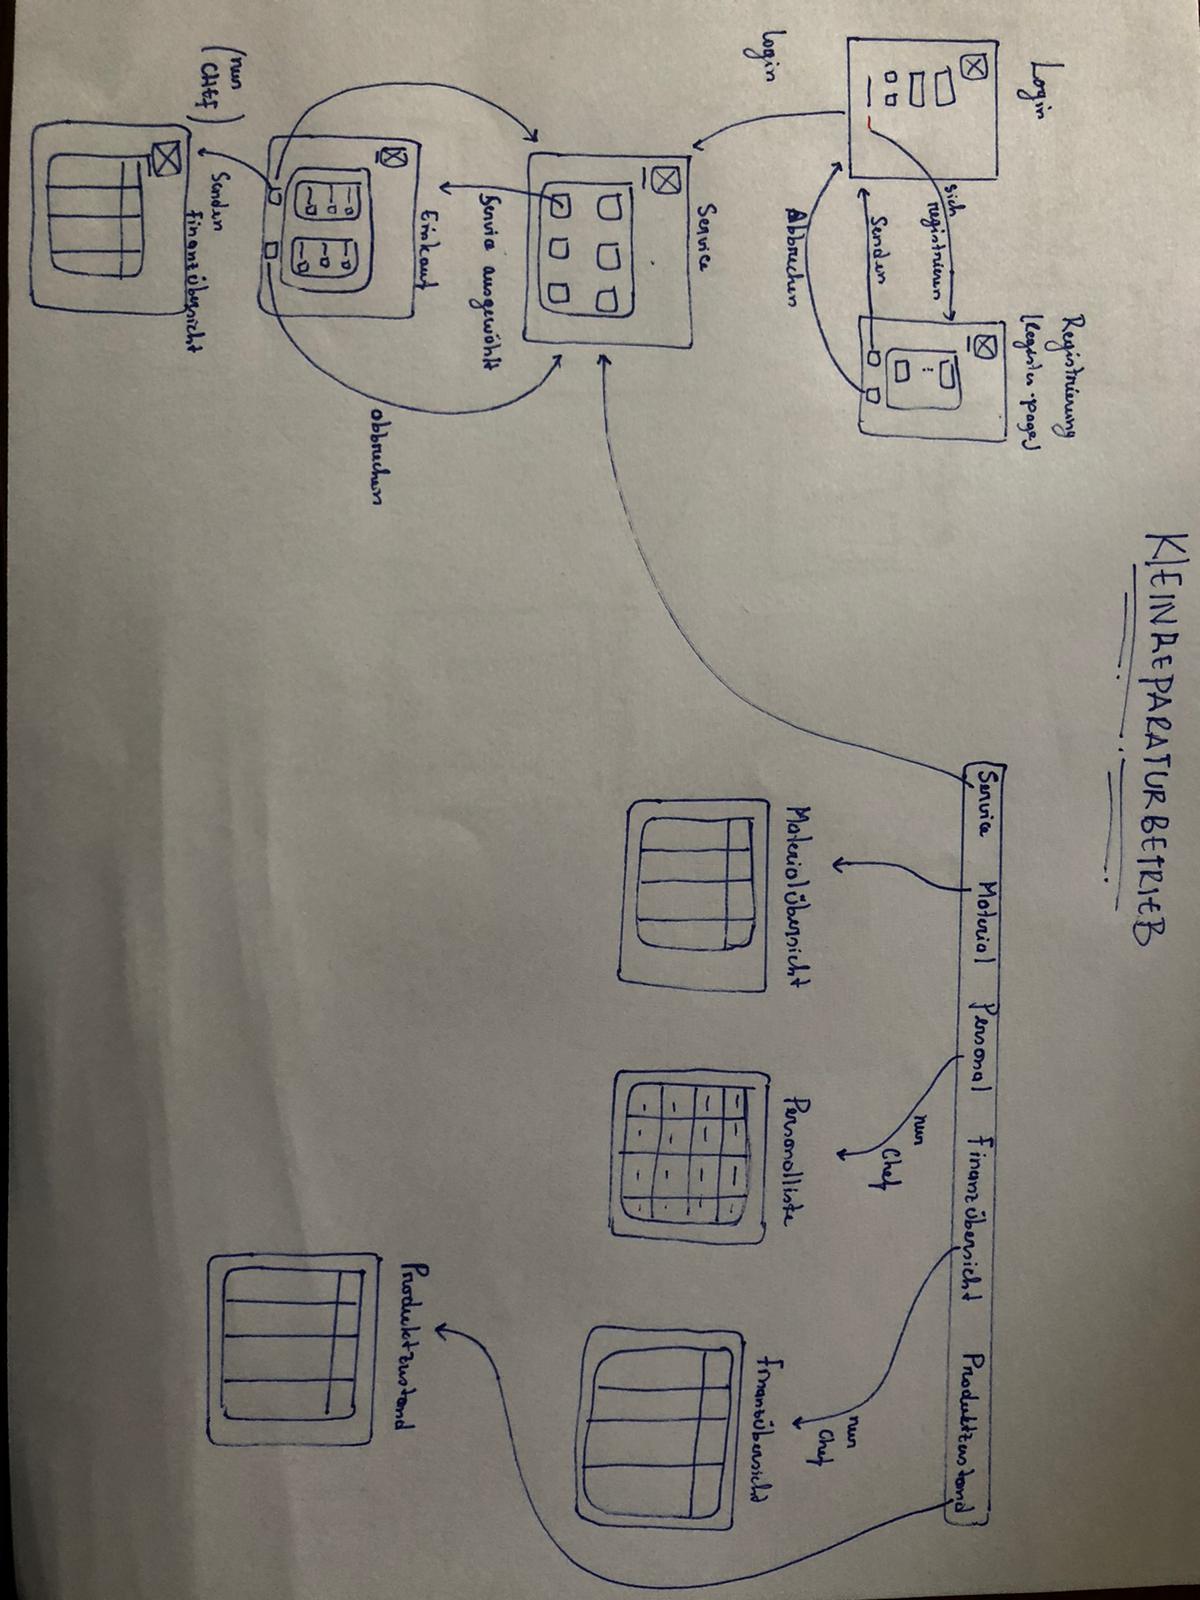 KLEINREPARATURBETRIEB
Login
Registrierung
(Register-page)
sich
registrieren
Senden
Abbrechen
Login
Service
Service ausgewählt
Einkauf
abbrechen
(nur
CHEF)
Senden
Finanzübersicht
Service Material Personal Finanzübersicht Produktzustand
nur
Chef
nur
Chef
Materialübersicht
Personalliste
Finanzübersicht
Produktzustand